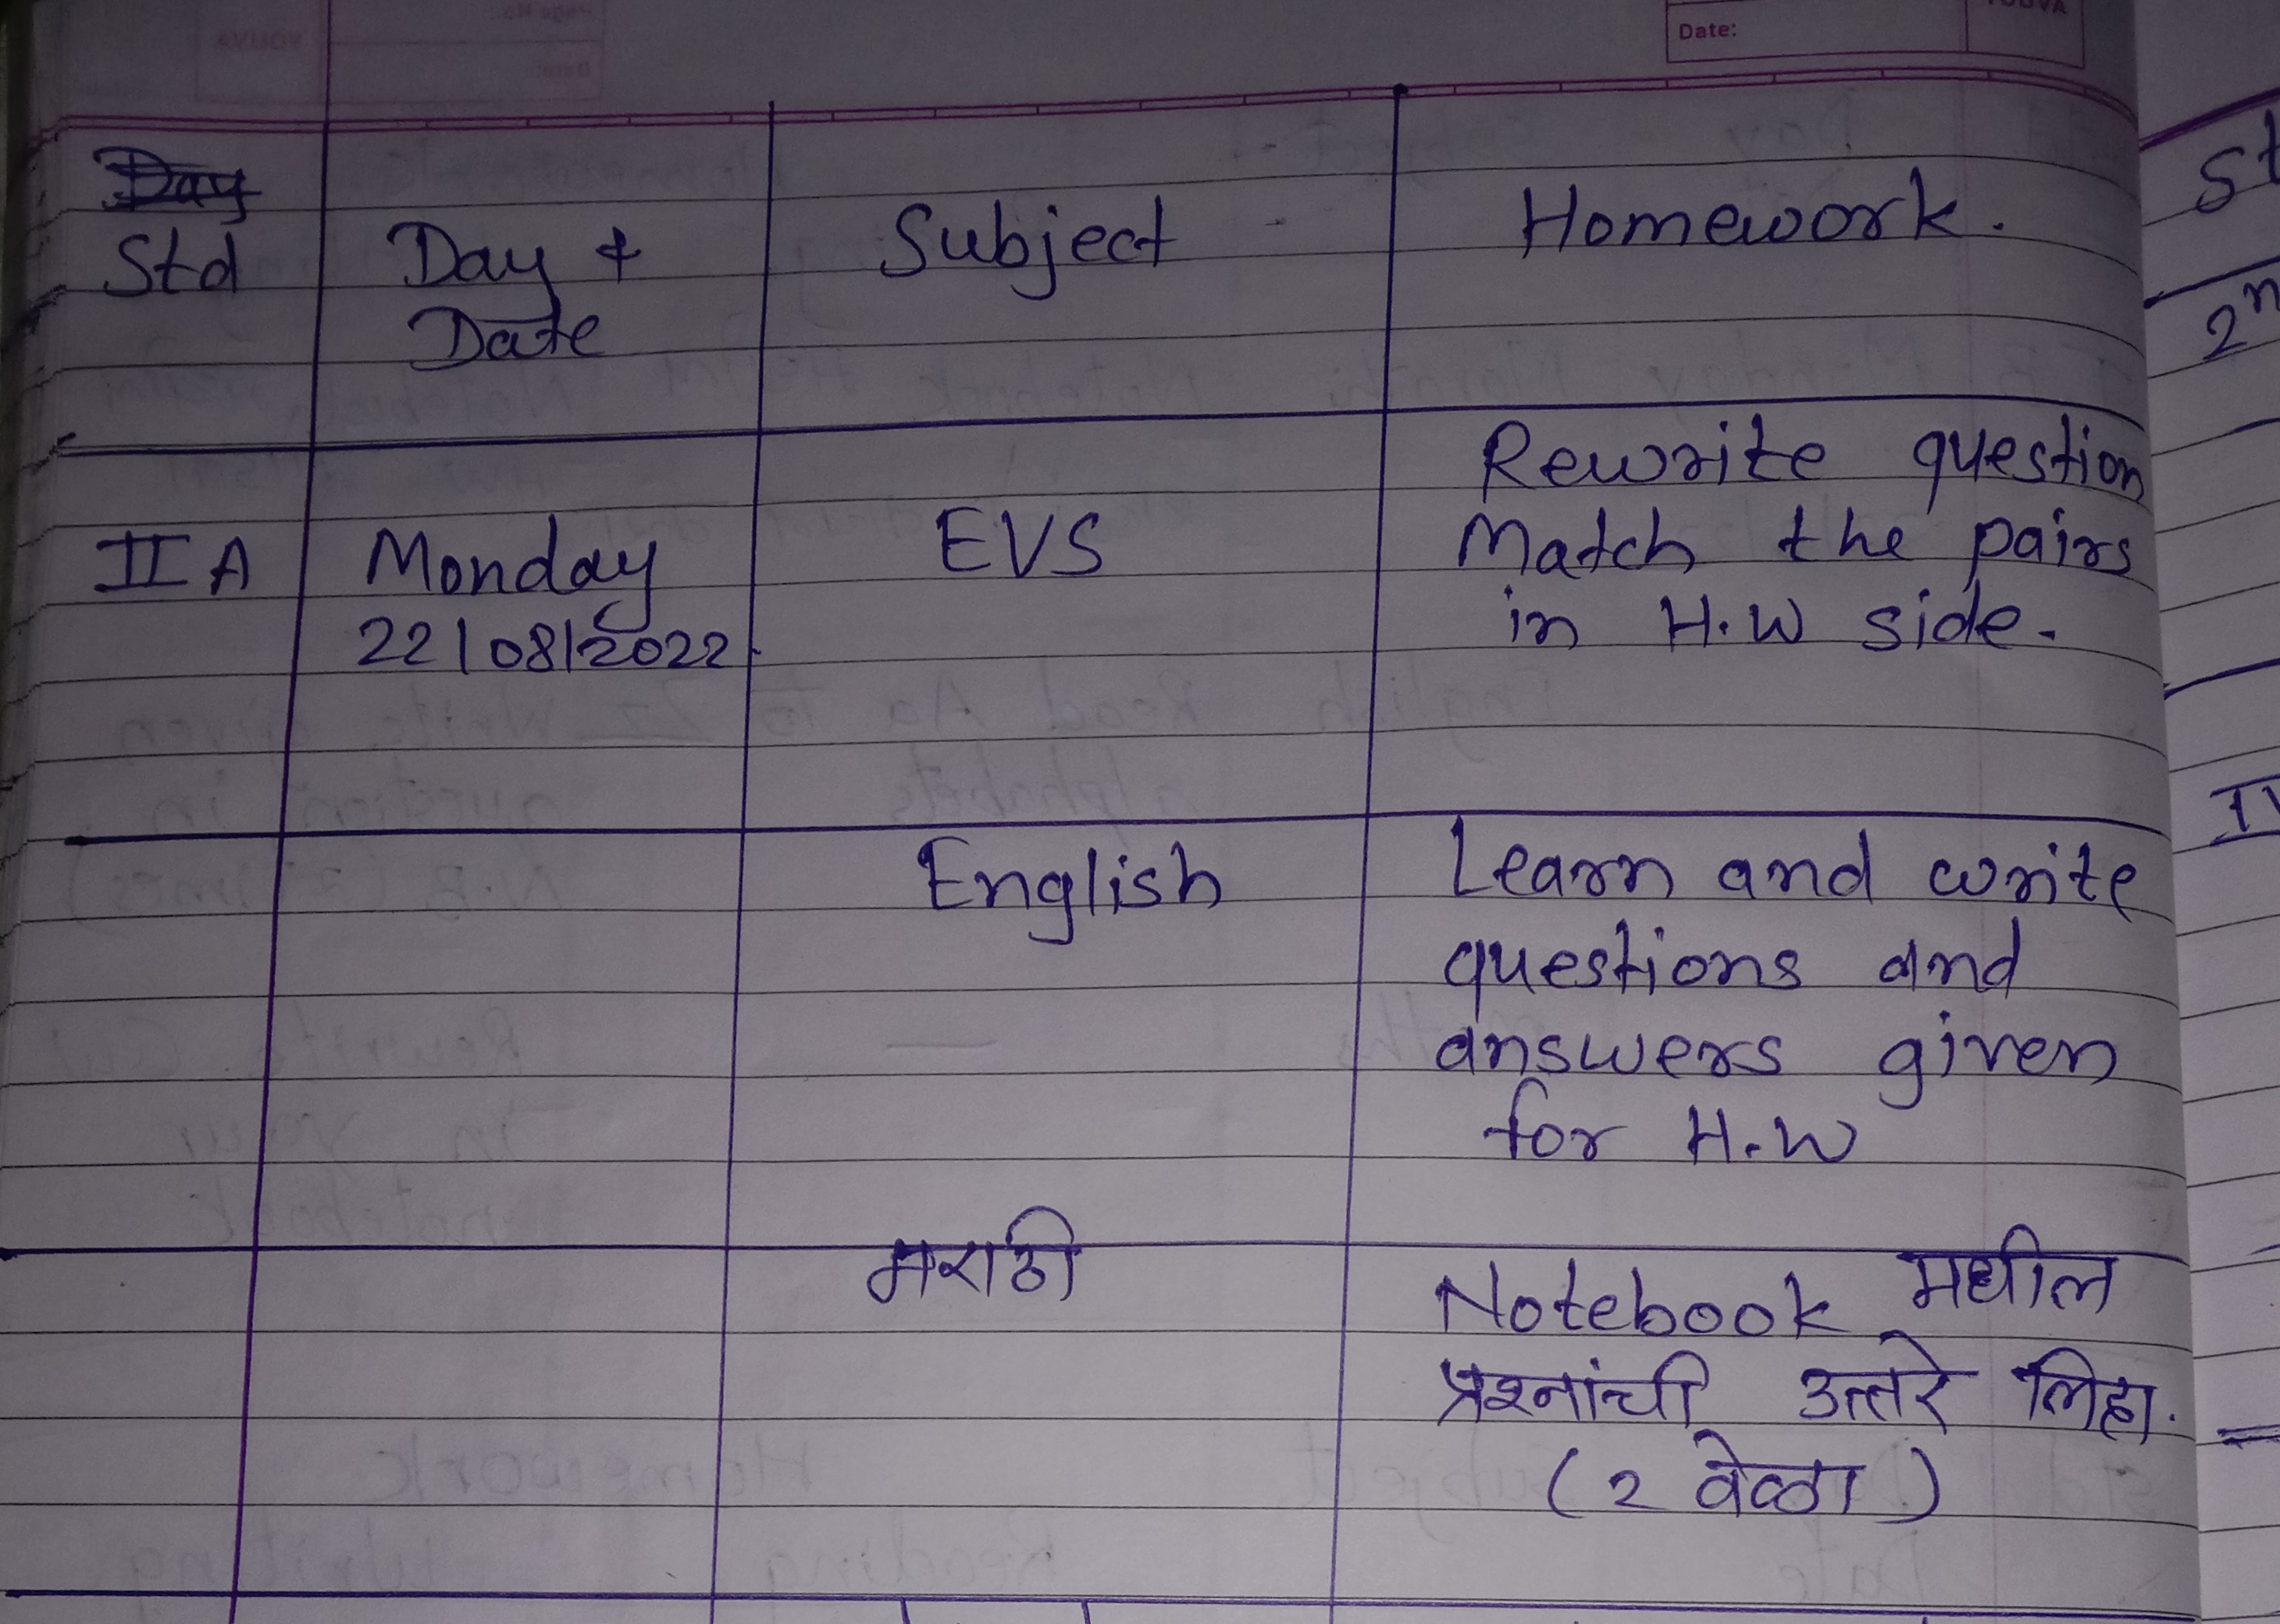 Date:
Day
Std
Day &
Date
Subject
Homework.
II A
Monday
22/08/2022
EVS
Rewrite question
Match the pairs
in H.W side.
English
Learn and write
questions and
answers given
for H.W
मराठी
Notebook मधील
प्रश्नांची उत्तरे लिहा.
(2 वेळा)